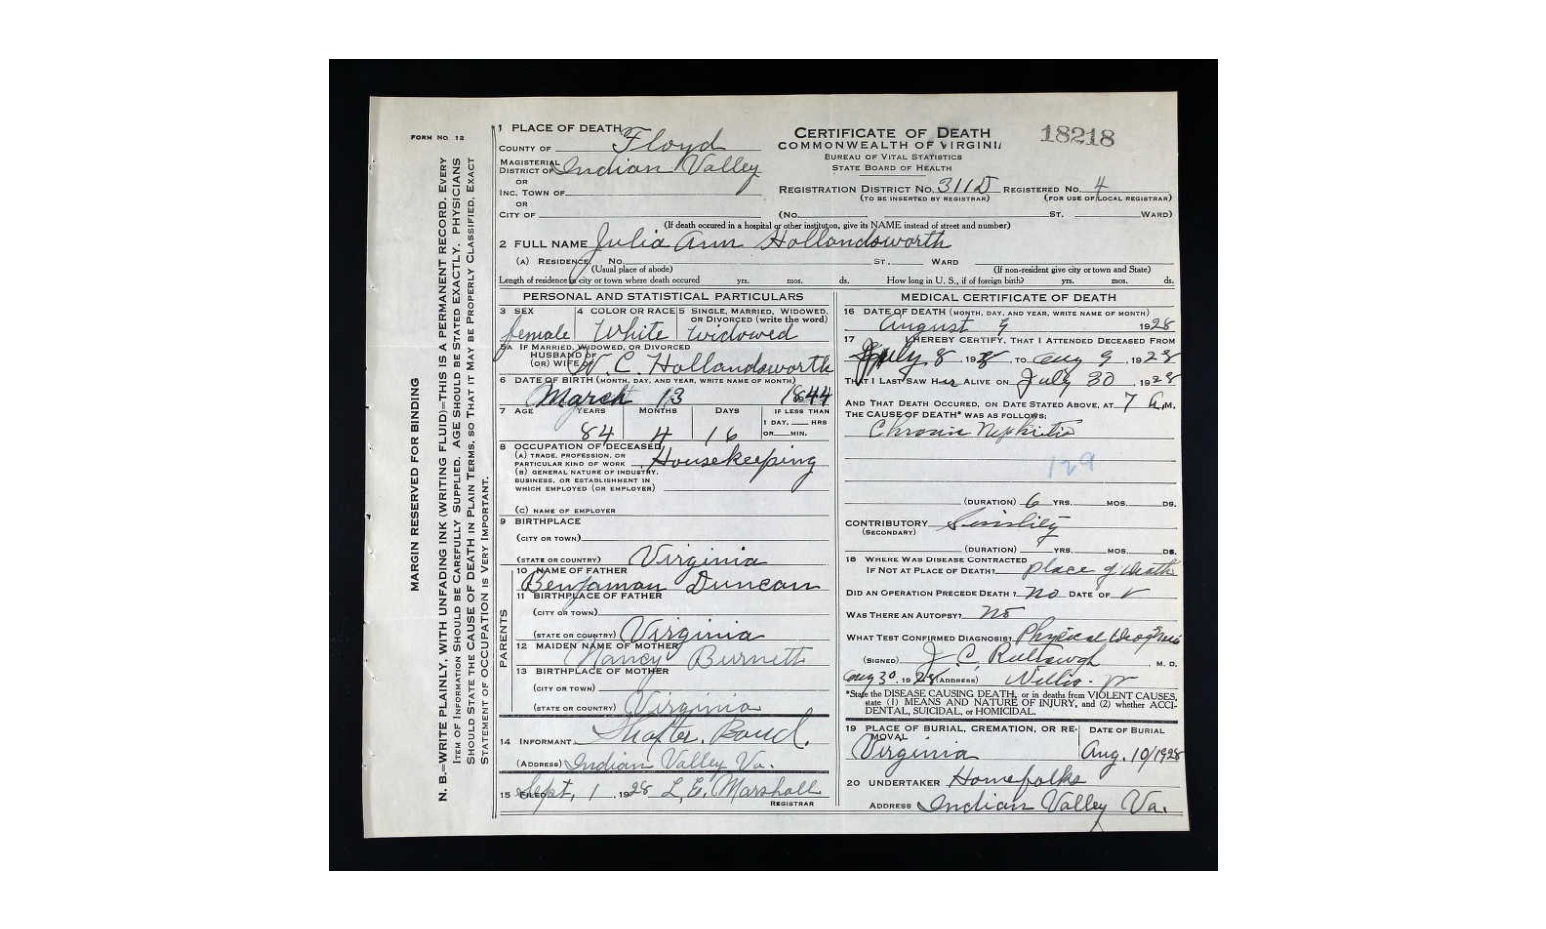 FORM NO. 12
MARGIN RESERVED FOR BINDING
N. B.—WRITE PLAINLY, WITH UNFADING INK (WRITING FLUID)—THIS IS A PERMANENT RECORD. EVERY
ITEM OF INFORMATION SHOULD BE CAREFULLY SUPPLIED. AGE SHOULD BE STATED EXACTLY. PHYSICIANS
SHOULD STATE THE CAUSE OF DEATH IN PLAIN TERMS, SO THAT IT MAY BE PROPERLY CLASSIFIED. EXACT
STATEMENT OF OCCUPATION IS VERY IMPORTANT.
1 PLACE OF DEATH
COUNTY OF Floyd
MAGISTERIAL DISTRICT OF Indian Valley
OR
INC. TOWN OF
OR
CITY OF
CERTIFICATE OF DEATH
COMMONWEALTH OF VIRGINIA
BUREAU OF VITAL STATISTICS
STATE BOARD OF HEALTH
18218
REGISTRATION DISTRICT NO. 311D REGISTERED NO. 4
(TO BE INSERTED BY REGISTRAR) (FOR USE OF LOCAL REGISTRAR)
(No. ST. WARD)
(If death occured in a hospital or other instituton, give its NAME instead of street and number)
2 FULL NAME Julia Ann Hollandsworth
(A) RESIDENCE. No. ST. WARD
(Usual place of abode) (If non-resident give city or town and State)
Length of residence in city or town where death occured yrs. mos. ds. How long in U. S., if of foreign birth? yrs. mos. ds.
PERSONAL AND STATISTICAL PARTICULARS
3 SEX 4 COLOR OR RACE 5 SINGLE, MARRIED, WIDOWED, OR DIVORCED (write the word)
female White widowed
5A IF MARRIED, WIDOWED, OR DIVORCED
HUSBAND OF
(OR) WIFE OF W. C. Hollandsworth
6 DATE OF BIRTH (MONTH, DAY, AND YEAR, WRITE NAME OF MONTH)
March 13 1844
7 AGE YEARS MONTHS DAYS IF LESS THAN
1 DAY, HRS
OR MIN.
84 4 16
8 OCCUPATION OF DECEASED
(A) TRADE, PROFESSION, OR
PARTICULAR KIND OF WORK Housekeeping
(B) GENERAL NATURE OF INDUSTRY,
BUSINESS, OR ESTABLISHMENT IN
WHICH EMPLOYED (OR EMPLOYER)
(C) NAME OF EMPLOYER
9 BIRTHPLACE
(CITY OR TOWN)
(STATE OR COUNTRY) Virginia
PARENTS
10 NAME OF FATHER
Benjaman Duncan
11 BIRTHPLACE OF FATHER
(CITY OR TOWN)
(STATE OR COUNTRY) Virginia
12 MAIDEN NAME OF MOTHER
Nancy Burnett
13 BIRTHPLACE OF MOTHER
(CITY OR TOWN)
(STATE OR COUNTRY) Virginia
14 INFORMANT
(ADDRESS) Indian Valley Va.
15 FILED Sept, 1, 1928 L. E. Marshall
REGISTRAR
MEDICAL CERTIFICATE OF DEATH
16 DATE OF DEATH (MONTH, DAY, AND YEAR, WRITE NAME OF MONTH)
August 9 1928
17 I HEREBY CERTIFY, THAT I ATTENDED DECEASED FROM
July 8 1928, TO Aug 9, 1928
THAT I LAST SAW Her ALIVE ON July 30, 1928
AND THAT DEATH OCCURED, ON DATE STATED ABOVE, AT 7 A.M.
THE CAUSE OF DEATH* WAS AS FOLLOWS:
Chronic Nephritis
129
(DURATION) 6 YRS. MOS. DS.
CONTRIBUTORY
(SECONDARY)
(DURATION) YRS. MOS. DS.
18 WHERE WAS DISEASE CONTRACTED
IF NOT AT PLACE OF DEATH? place of death
DID AN OPERATION PRECEDE DEATH? No DATE OF
WAS THERE AN AUTOPSY? No
WHAT TEST CONFIRMED DIAGNOSIS? Physical
(SIGNED) J. C. M. D.
Aug 30, 1928 (ADDRESS) Willis
*State the DISEASE CAUSING DEATH, or in deaths from VIOLENT CAUSES,
state (1) MEANS AND NATURE OF INJURY, and (2) whether ACCI-
DENTAL, SUICIDAL, or HOMICIDAL.
19 PLACE OF BURIAL, CREMATION, OR RE-MOVAL DATE OF BURIAL
Virginia Aug. 10/1928
20 UNDERTAKER Homefolks
ADDRESS Indian Valley Va.